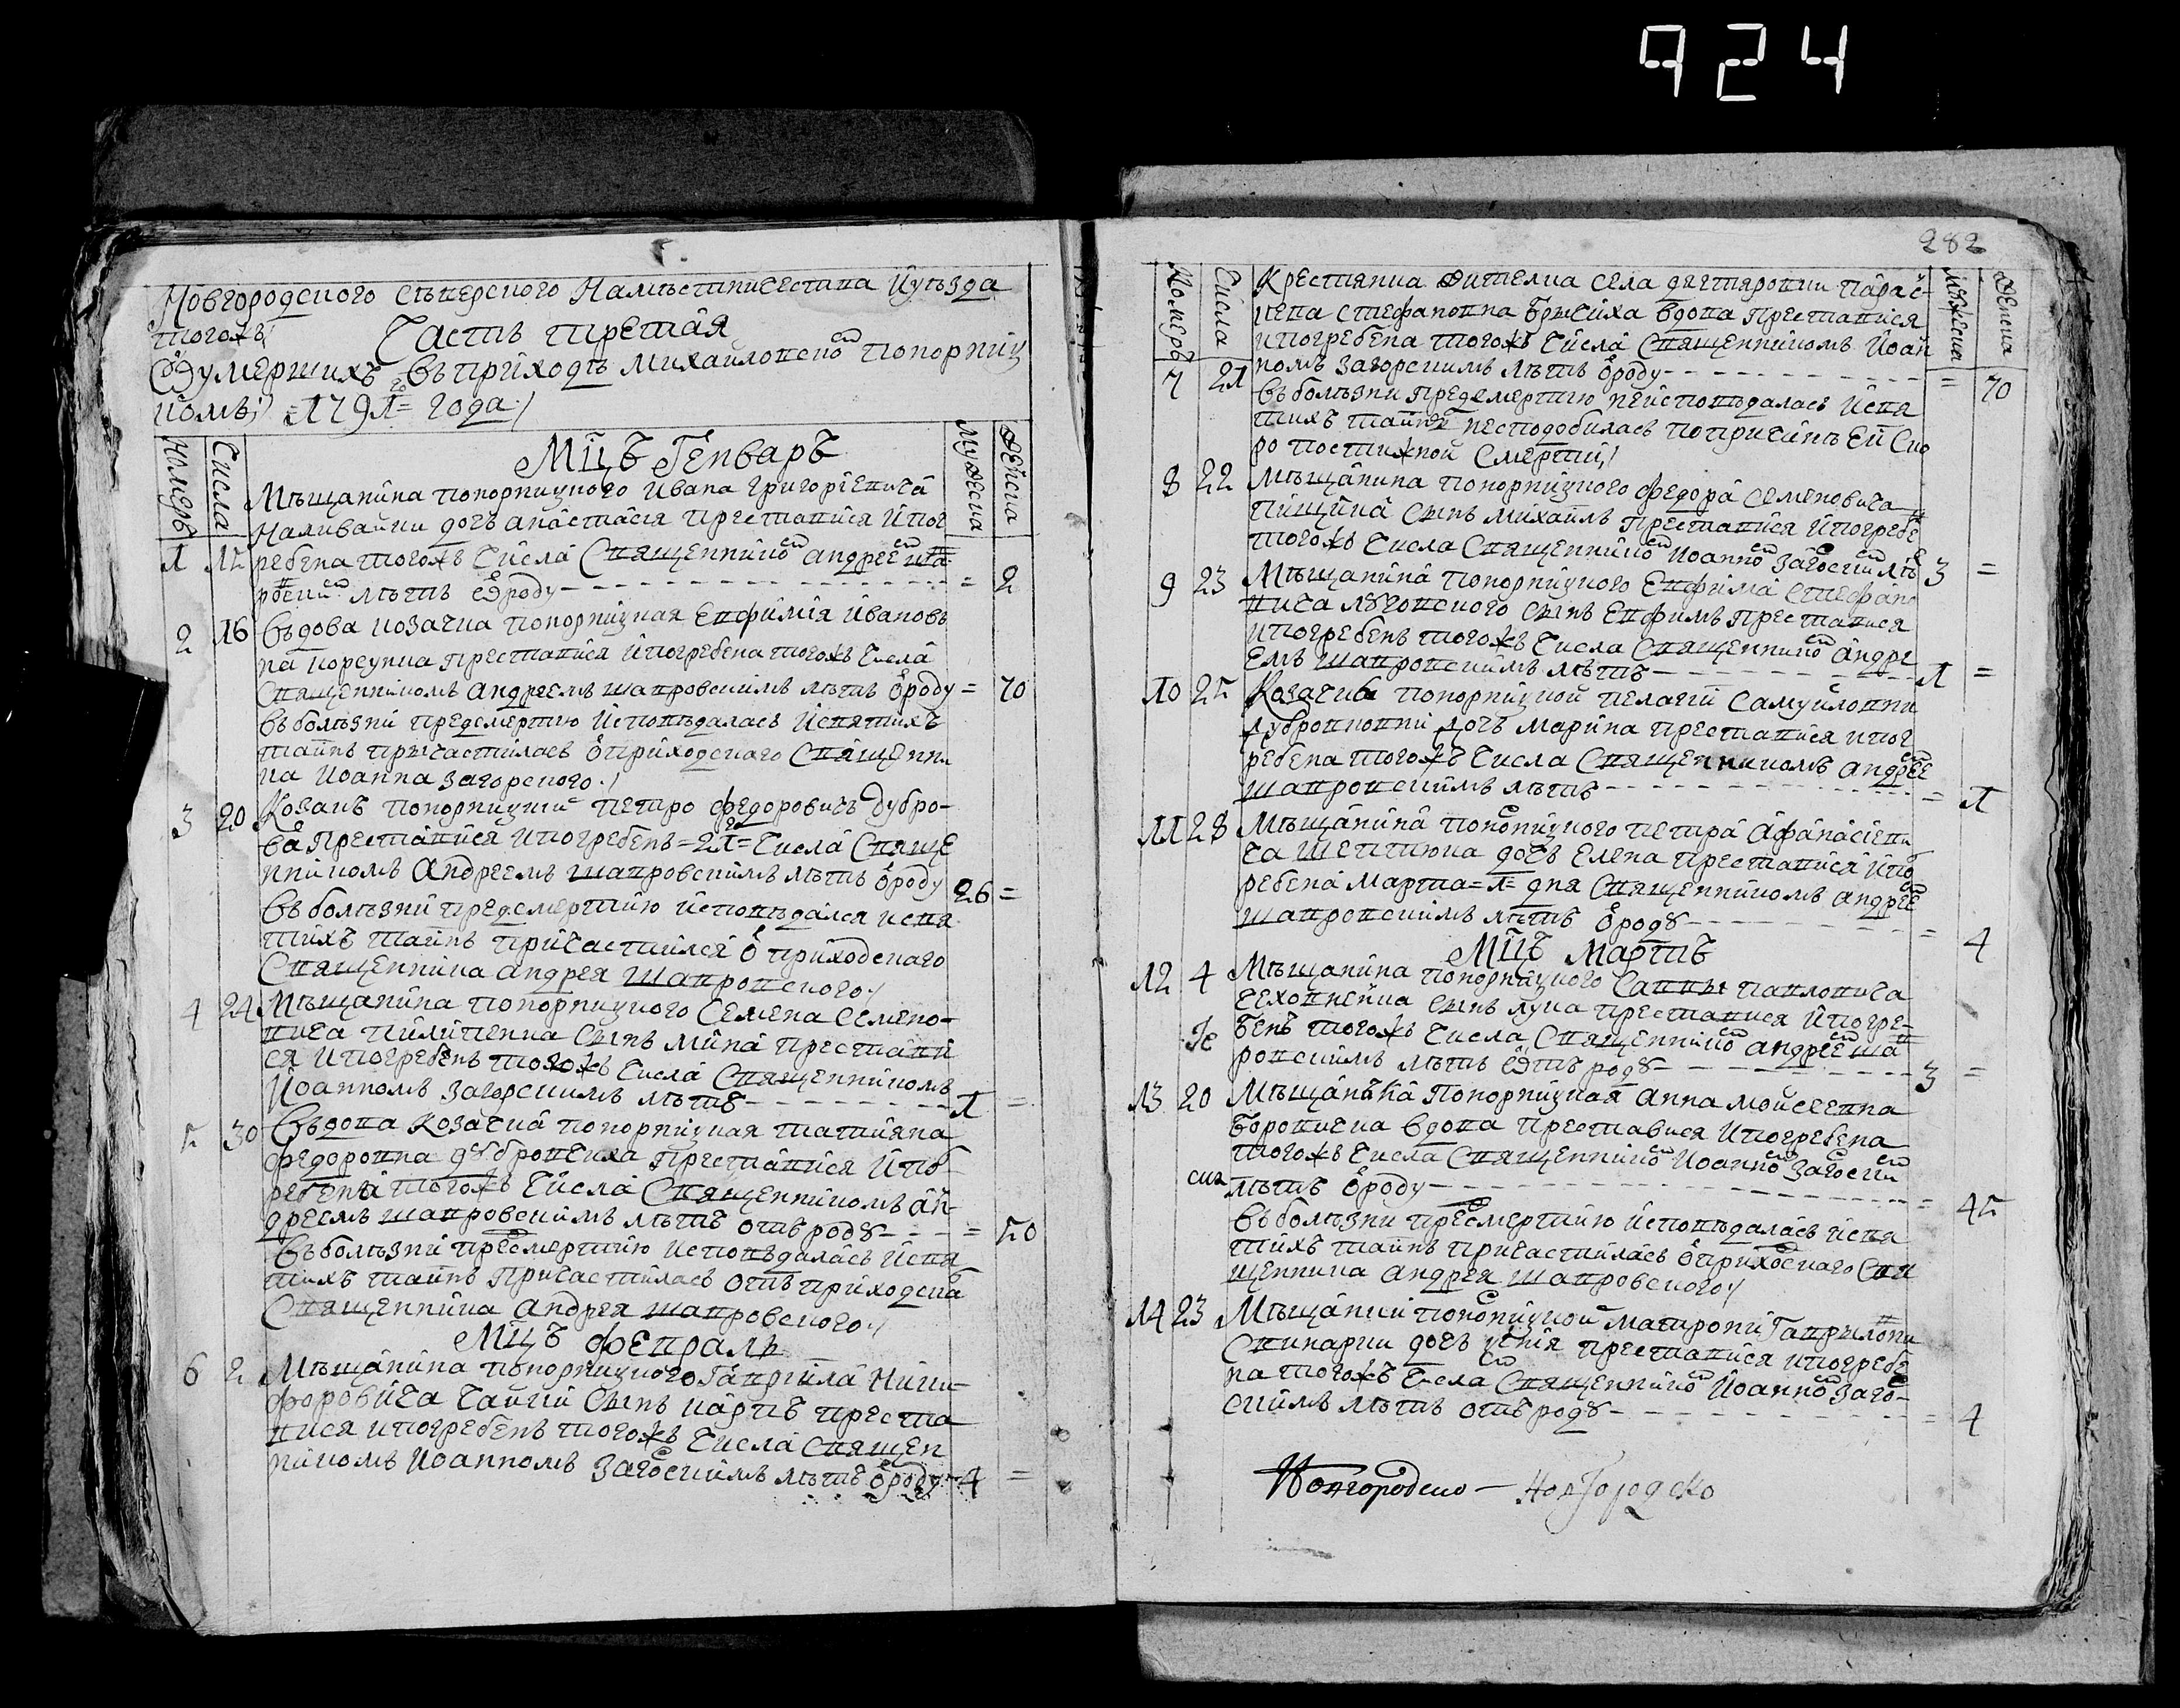 924
Новгородского Сѣверского Намѣстничества Иуѣзда
тогожъ;
Часть третая
Оумершихъ въ приходѣ Михайловско Понорниц
комъ; =1791=го года:/
Номеръ
Числа
Мужеска
Женска
Мцъ Генваръ
Мѣщанина понорницкого Ивана Григоріевича
Наливайки дочъ анастасія преставися ипог
1 15 ребена тогожъ числа Священнико андрее шап
роски лѣтъ Ѿроду = 2
2 16 Въдова козачка понорницкая Евфимія Ивановъ
на корсунка преставися ипогребена тогожъ числа
Священникомъ андреемъ шапровскимъ лѣтъ ѿроду = 70
Въболѣзни предсмертию исповѣдалась исвятихъ
таинъ причастилась ѿприходскаго Священни
ка Иоанна Загорского:/
3 20 Козакъ понорницкий Петро Федоровичъ дубро-
ва преставися ипогребенъ =21=го числа Свяще
нникомъ Андреемъ шапровскимъ лѣтъ ѿроду 26 =
Въболѣзни предсмертию исповѣдался исвя
тихъ таинъ причастился ѿ приходскаго
Священника андрея шапровского:/
4 24 Мѣщанина понорницкого Семена Семено-
вича Пилипенка сынъ мина престави
ся ипогребенъ тогожъ числа Священникомъ
Иоанномъ Загорскимъ лѣтъ 1 =
5 30 Въдова козачка понорницкая татияна
федоровна дубровчиха преставися ипог
ребена тогожъ числа Священникомъ ан-
дреемъ шапровскимъ лѣтъ отъ роду = 50
Въболѣзни предсмертию исповѣдалась исвя
тихъ таинъ причастилась отъ приходска
Священника андрея шапровского:/
Мцъ Февралъ
6 2 Мѣщанина понорницкого Гаврила Ники-
форовича Сынъ карпъ преста
вися ипогребенъ тогожъ числа Священ
никомъ Иоанномъ Загорскимъ лѣтъ ѿроду 4 =
282
Номеръ
Числа
Мужеска
Женска
Крестянка жителка села дегтяровки Парас-
кева Стефановна Брычиха вдова преставися
ипогребена тогожъ числа Священникомъ Иоан
7 21 номъ Загорскимъ лѣтъ ѿроду = 70
Въболѣзни предсмертию неисповѣдалась исвя
тихъ таинъ несподобилась попричинѣ ей ско
ро постижной смерти;/
8 22 Мѣщанина понорницкого Федора Семеновича
Сынъ михаилъ преставися ипогребе
тогожъ числа Священнико Иоанно Загоски лѣ 3 =
9 23 Мѣщанина понорницкого Евфима Стефано
вича луговского сынъ Евфимъ преставися
ипогребенъ тогожъ числа Священнико андре
емъ шапровскимъ лѣтъ 1 =
10 25 Козачки понорницкой пелагии Самуиловни
дубровковни дочъ Марина преставися ипог
ребена тогожъ числа Священникомъ андрее
шапровскимъ лѣтъ = 1
11 28 Мѣщанина понорницкого Петра Афанасіеви
ча дочъ Елена преставися ипог
ребена марта =1= дня Священникомъ андрее
шапровскимъ лѣтъ ѿроду = 4
Мцъ Мартъ
12 4 Мѣщанина понорницкого Саввы павловича
сынъ лука преставися ипогре-
бенъ тогожъ числа Священнико андрее шап
ровскимъ лѣтъ ѿтъ роду 3 =
13 20 Мѣщанъка Понорницкая анна моисеевна
Боровичка вдова преставися ипогребена
тогожъ числа Священнико Иоанно Загоски
лѣтъ ѿроду = 45
Въболѣзни предсмертию исповѣдалась исвя
тихъ таинъ причастилась ѿприходского Свя
щенника андрея шапровского:/
14 23 Мѣщанки понорницкой матрони Гаврилови
Спинарки дочъ преставися ипогребе
на тогожъ числа Священнико Иоанно Заго-
скимъ лѣтъ отъ роду = 4
Новгородско — Новгородско